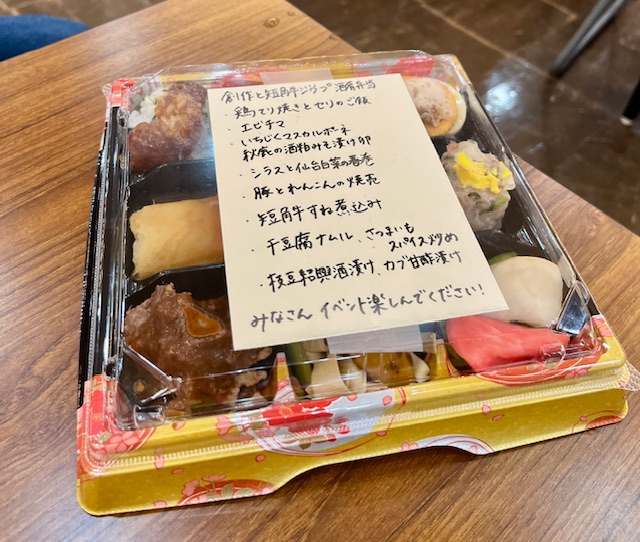 創作と短角牛ジャップ 酒肴弁当
・鶏てり焼きとセリのご飯
・エビチマ
・いちじくマスカルポーネ
秋鹿の酒粕みそ漬け卵
・シラスと仙台白菜の春巻
・豚とれんこんの焼売
・短角牛すね煮込み
・干豆腐ナムル、さつまいもスパイス炒め
・枝豆紹興酒漬け、カブ甘酢漬け
みなさん イベント楽しんでください！